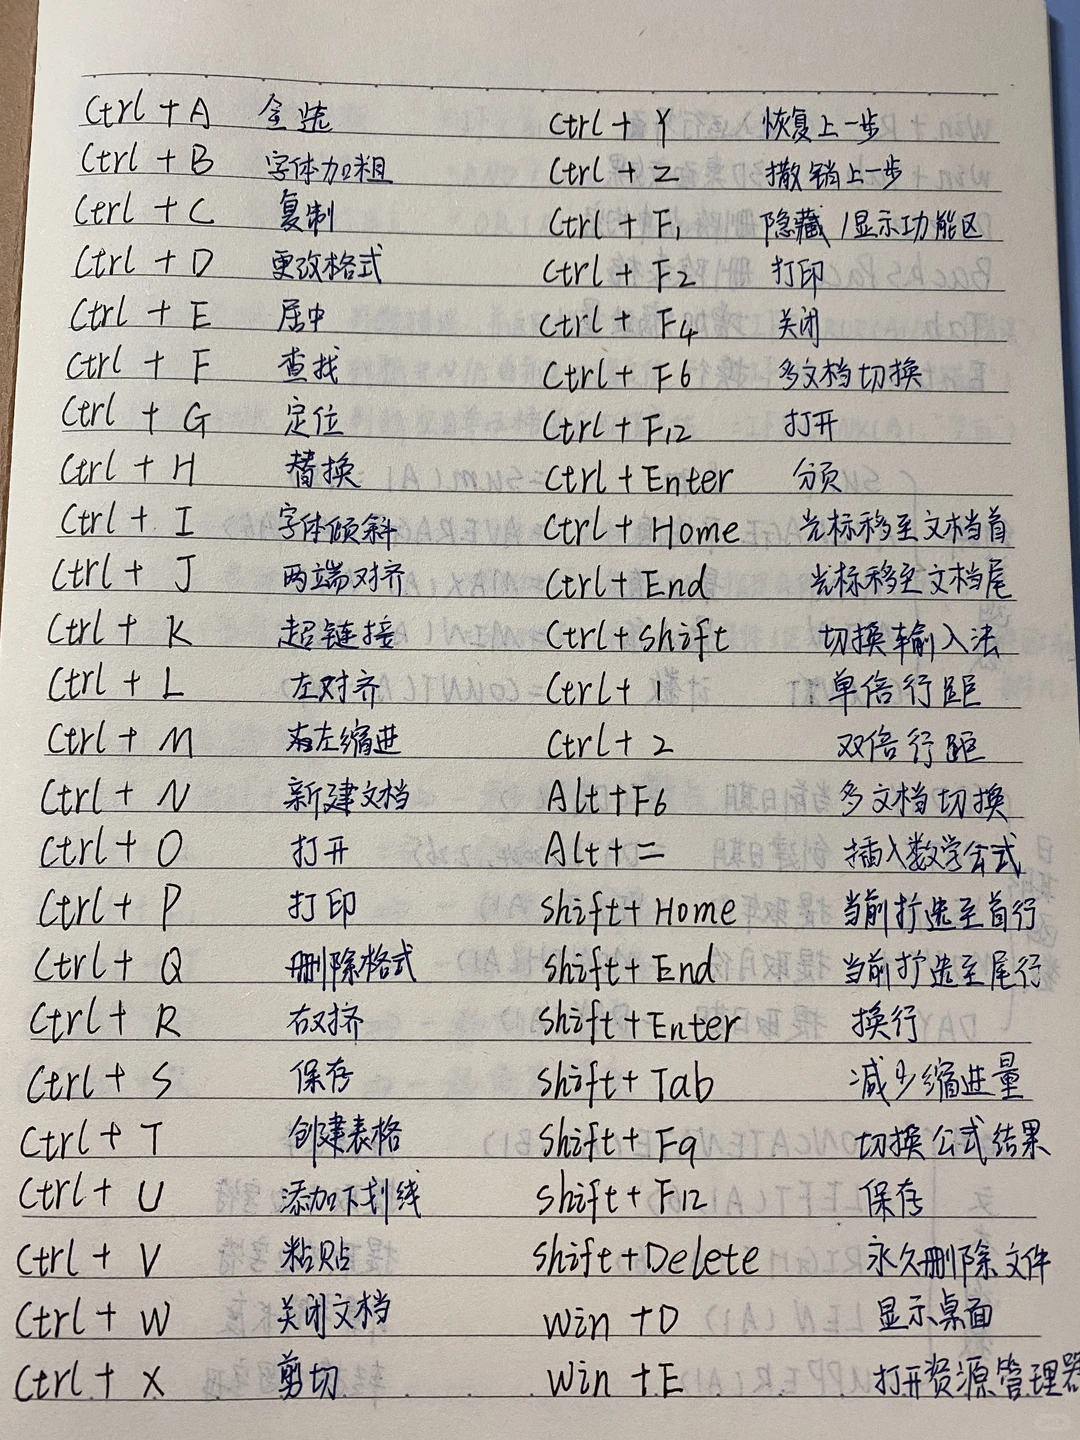 Ctrl + A 全选
Ctrl + B 字体加粗
Ctrl + C 复制
Ctrl + D 更改格式
Ctrl + E 居中
Ctrl + F 查找
Ctrl + G 定位
Ctrl + H 替换
Ctrl + I 字体倾斜
Ctrl + J 两端对齐
Ctrl + K 超链接
Ctrl + L 左对齐
Ctrl + M 左缩进
Ctrl + N 新建文档
Ctrl + O 打开
Ctrl + P 打印
Ctrl + Q 删除格式
Ctrl + R
Ctrl + S 保存
Ctrl + T 创建表格
Ctrl + U 添加下划线
Ctrl + V 粘贴
Ctrl + W 关闭文档
Ctrl + X 剪切
Ctrl + Y 恢复上一步
Ctrl + Z 撤销上一步
Ctrl + F1 隐藏/显示功能区
Ctrl + F2 打印
Ctrl + F4 关闭
Ctrl + F6 多文档切换
Ctrl + F12 打开
Ctrl + Enter 分页
Ctrl + Home 光标移至文档首
Ctrl + End 光标移至文档尾
Ctrl + shift 切换输入法
Ctrl + 1 单倍行距
Ctrl + 2 双倍行距
Alt + F6 多文档切换
Alt + = 插入数学公式
shift + Home 当前扩选至首行
shift + End 当前扩选至尾行
shift + Enter 换行
shift + Tab 减少缩进量
shift + F9 切换公式结果
shift + F12 保存
shift + Delete 永久删除文件
win + D 显示桌面
win + E 打开资源管理器